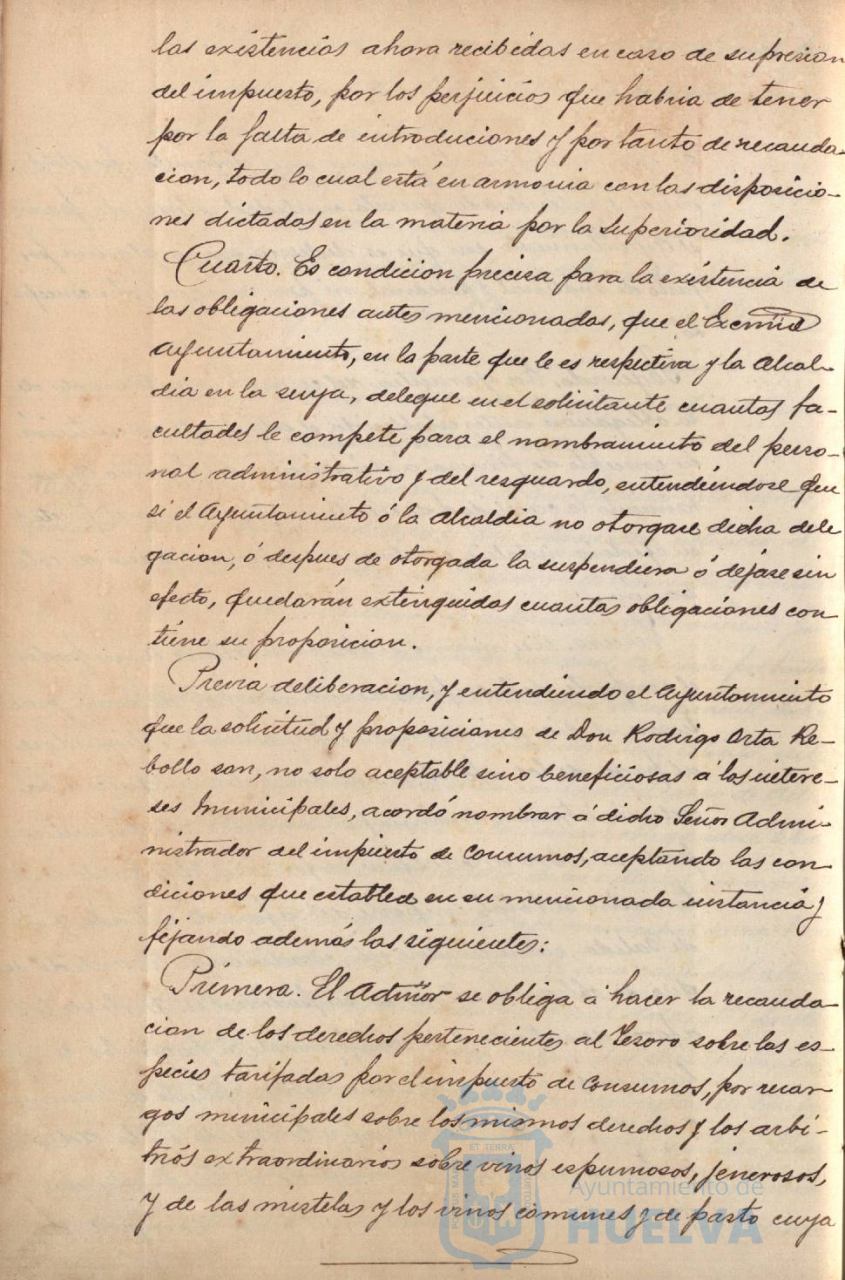 las existencias ahora recibidas en caso de supresion
del impuesto, por los perjuicios que habria de tener
por la falta de introduciones y por tanto de recauda-
cion, todo lo cual está en armonia con las disposicio-
nes dictadas en la materia por la Superioridad.
Cuarto. Es condicion precisa para la existencia de
las obligaciones antes mencionadas, que el Excmo
Ayuntamiento, en la parte que le es respectiva y la Alcal-
dia en la suya, delegue en el solicitante cuantas fa-
cultades le compete para el nombramiento del perso-
nal administrativo y del resguardo, entendiéndose que
si el Ayuntamiento ó la Alcaldia no otorgase dicha dele
gacion, ó despues de otorgada la suspendiera ó dejáse sin
efecto, quedarán extinguidas cuantas obligaciones con
tiene su proposicion.
Previa deliberacion, y entendiendo el Ayuntamiento
que la solicitud y proposiciones de Don Rodrigo Orta Re-
bollo son, no solo aceptable sino beneficiosas á los intere-
ses Municipales, acordó nombrar á dicho Señor Admi-
nistrador del impuesto de Consumos, aceptando las con
diciones que establece en su mencionada instancia y
fijando además las siguientes:
Primera. El Admor se obliga á hacer la recauda
cion de los derechos pertenecientes al Tesoro sobre las es-
pecies tarifadas por el impuesto de Consumos, por recar
gos municipales sobre los mismos derechos y los arbi-
trios extraordinarios sobre vinos espumosos, jenerosos,
y de las mistelas y los vinos comunes y de pasto cuya
Ayuntamiento de
HUELVA
ET TERRA